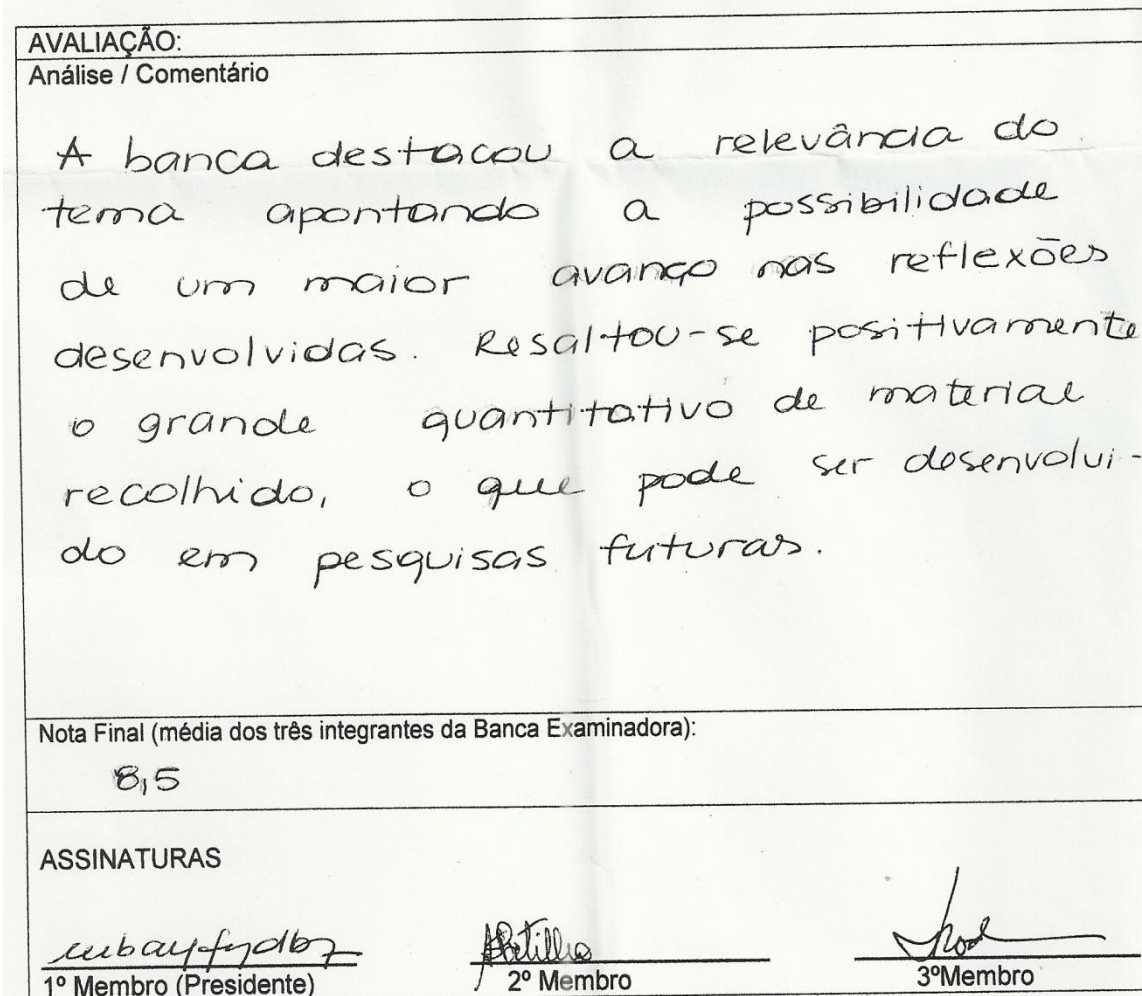 AVALIAÇÃO:
Análise / Comentário
A banca destacou a relevância do
tema apontando a possibilidade
de um maior avanço nas reflexões
desenvolvidas. Resaltou-se positivamente
o grande quantitativo de material
recolhido, o que pode ser desenvolvi-
do em pesquisas futuras.
Nota Final (média dos três integrantes da Banca Examinadora):
8,5
ASSINATURAS
1º Membro (Presidente)
2º Membro
3ºMembro